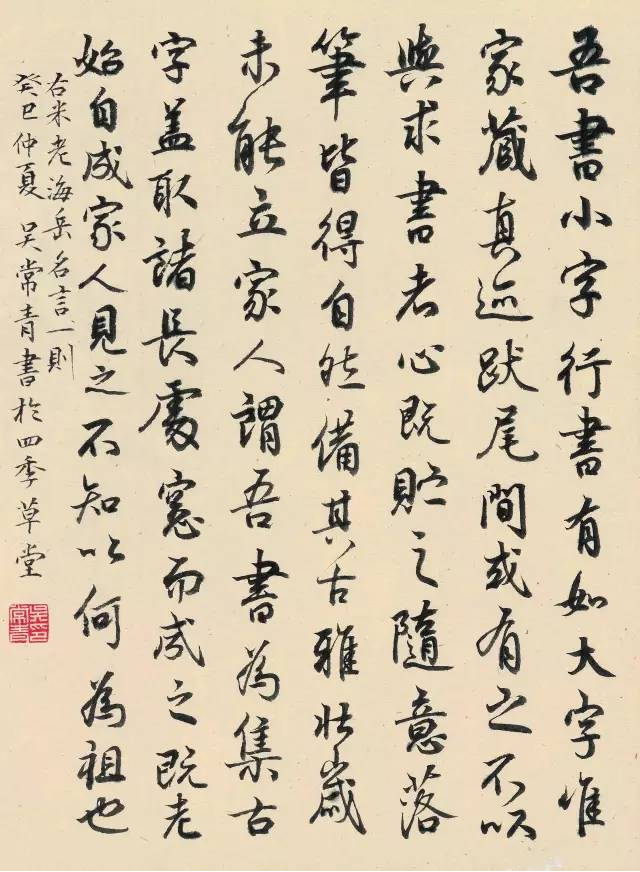 吾書小字行書有如大字唯
家藏真迹跋尾間或有之不以
與求書者心既貯之隨意落
筆皆得自然備其古雅壯歲
未能立家人謂吾書為集古
字盖取諸長處總而成之既老
始自成家人見之不知以何為祖也
右米老海岳名言一則
癸巳仲夏吴常青書於四季草堂
吴印
常青